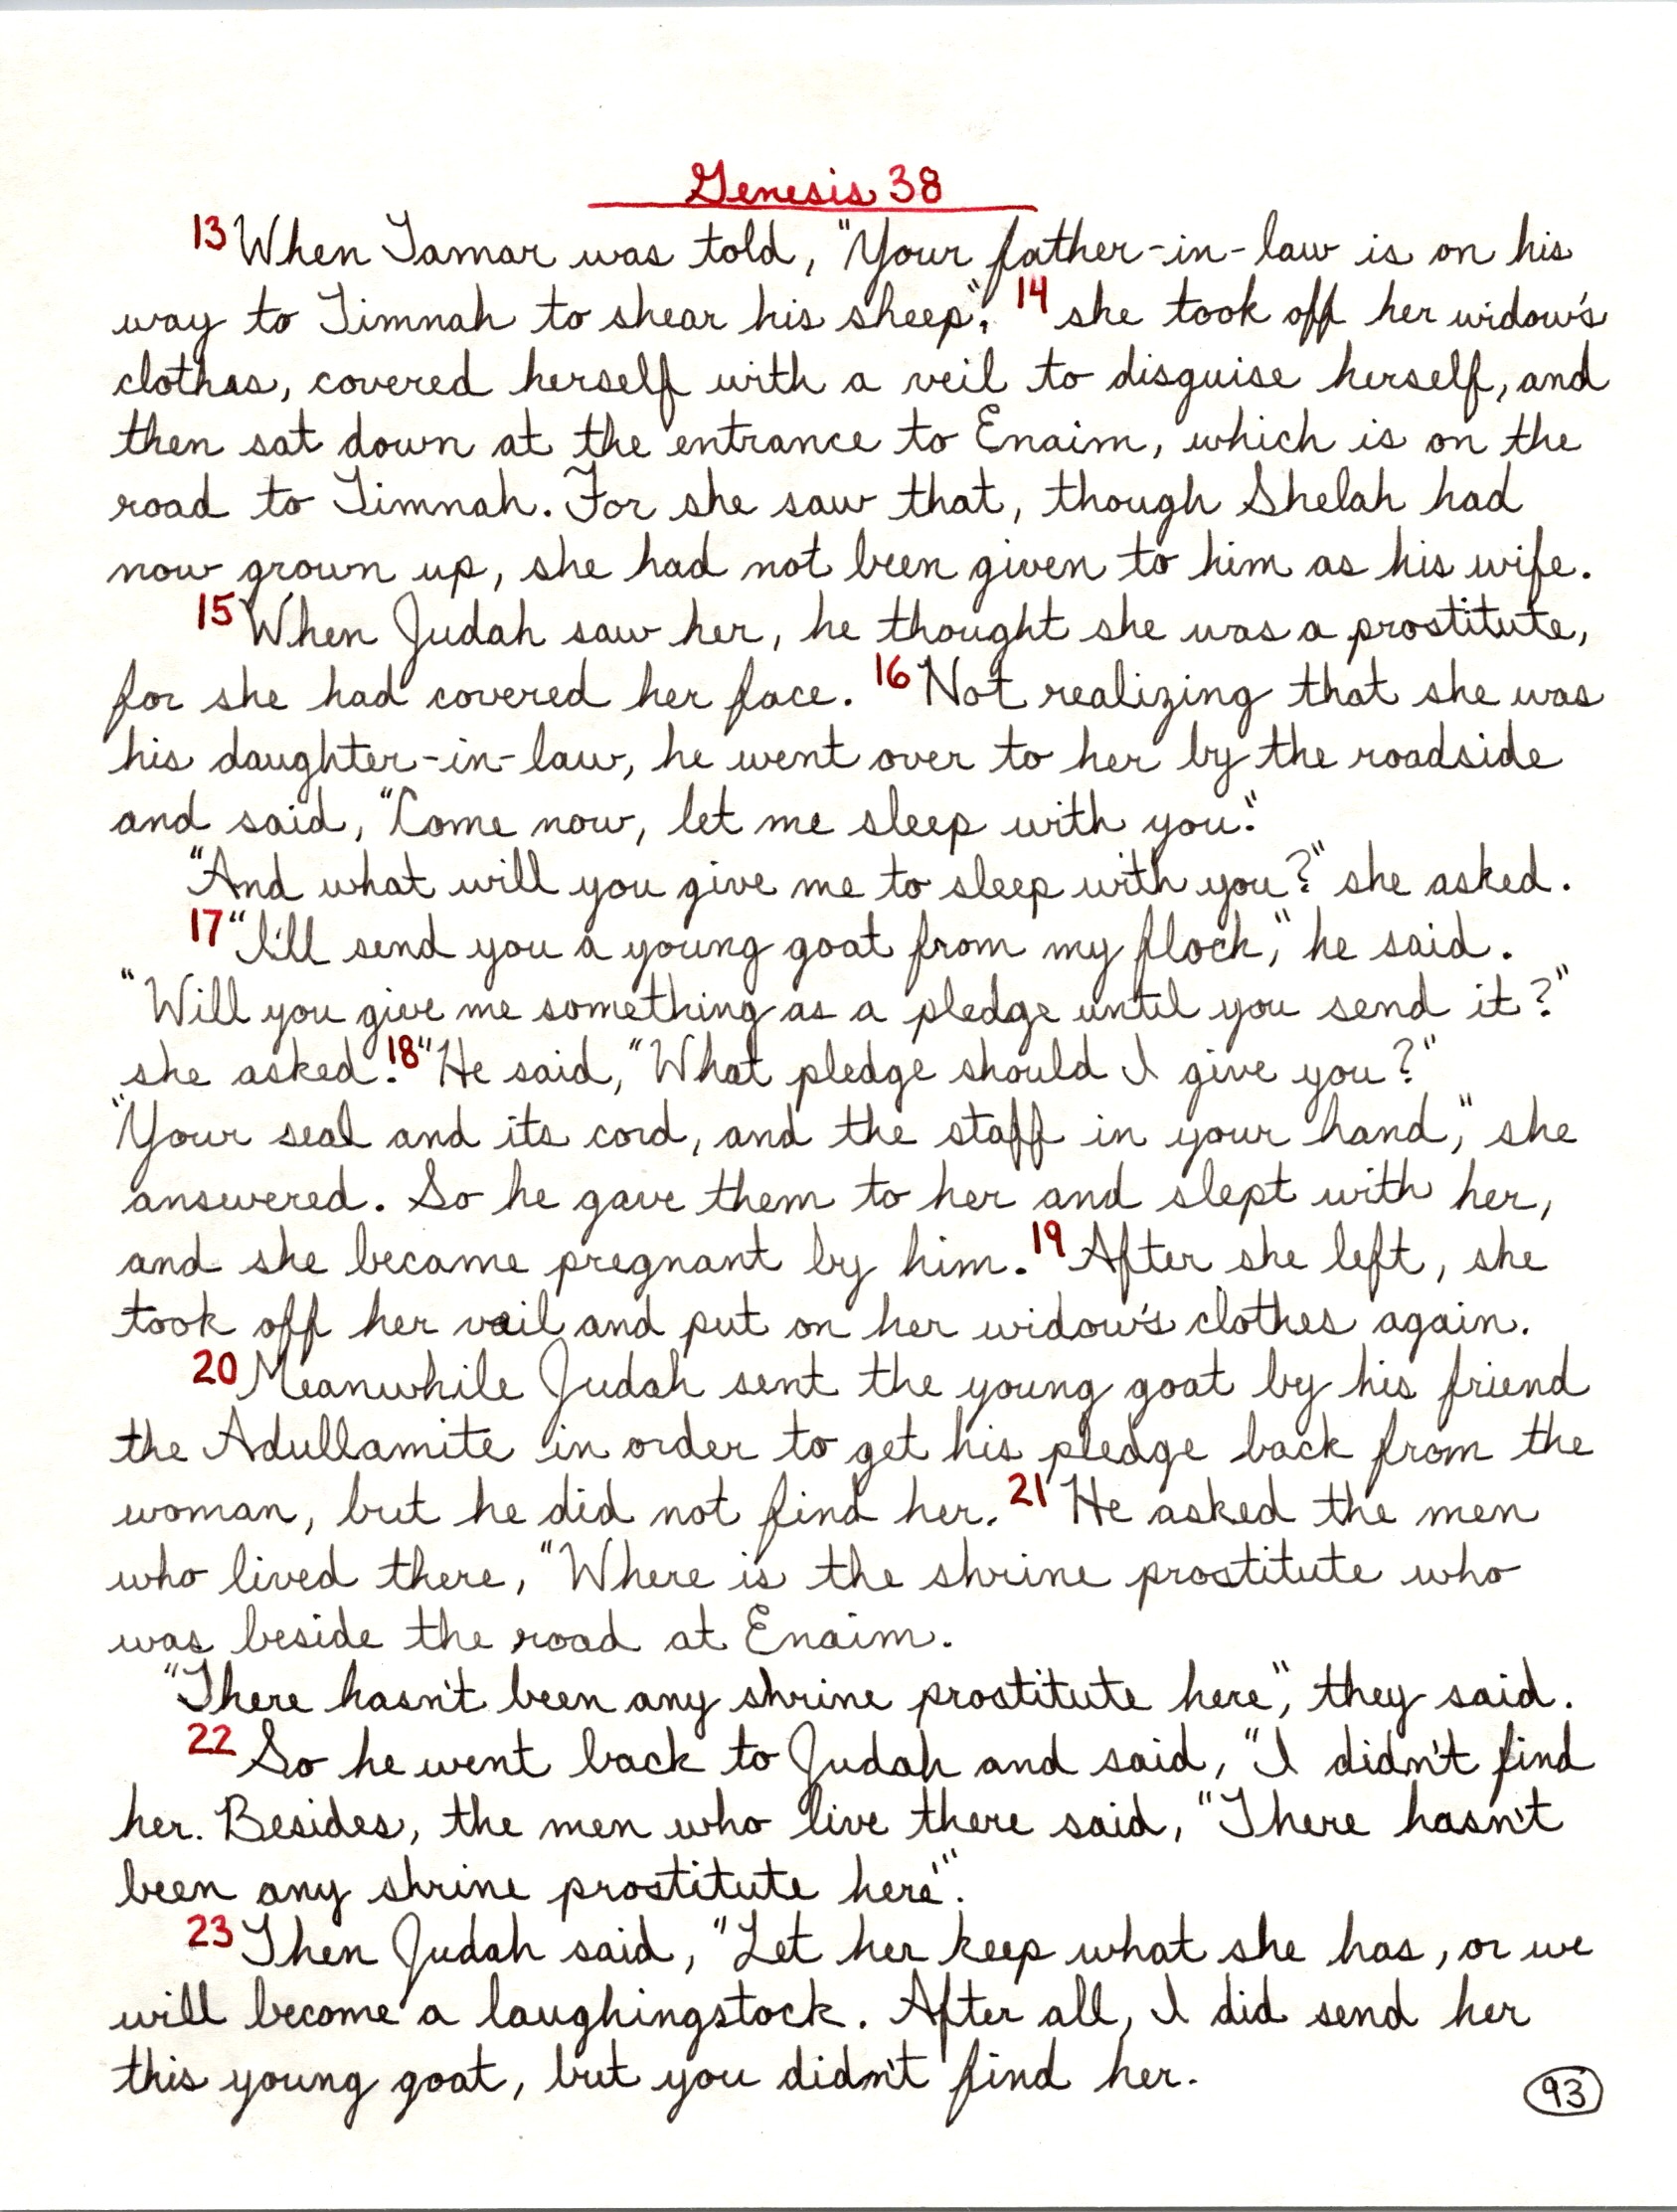 Genesis 38
13 When Tamar was told, "Your father-in-law is on his
way to Timnah to shear his sheep", 14 she took off her widow's
clothes, covered herself with a veil to disguise herself, and
then sat down at the entrance to Enaim, which is on the
road to Timnah. For she saw that, though Shelah had
now grown up, she had not been given to him as his wife.
15 When Judah saw her, he thought she was a prostitute,
for she had covered her face. 16 Not realizing that she was
his daughter-in-law, he went over to her by the roadside
and said, "Come now, let me sleep with you."
"And what will you give me to sleep with you?" she asked.
17 "I'll send you a young goat from my flock," he said.
"Will you give me something as a pledge until you send it?"
she asked. 18 "He said, "What pledge should I give you?"
"Your seal and its cord, and the staff in your hand," she
answered. So he gave them to her and slept with her,
and she became pregnant by him. 19 After she left, she
took off her veil and put on her widow's clothes again.
20 Meanwhile Judah sent the young goat by his friend
the Adullamite in order to get his pledge back from the
woman, but he did not find her. 21 He asked the men
who lived there, "Where is the shrine prostitute who
was beside the road at Enaim.
"There hasn't been any shrine prostitute here", they said.
22 So he went back to Judah and said, "I didn't find
her. Besides, the men who live there said, "There hasn't
been any shrine prostitute here'".
23 Then Judah said, "Let her keep what she has, or we
will become a laughingstock. After all, I did send her
this young goat, but you didn't find her.
93